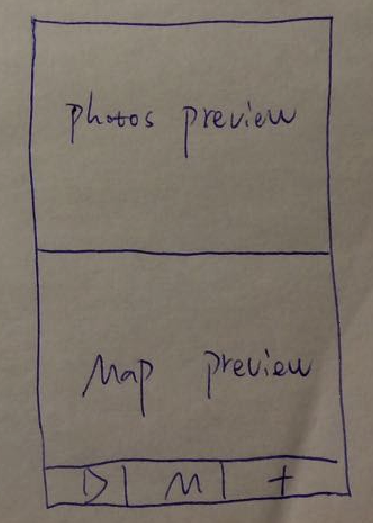 photos preview
Map preview
M +